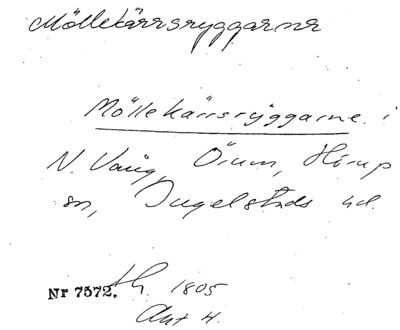 Möllekärrsryggarne
Möllekärrsryggarne i
N. Vång, Örum, Hörup
sn, Ingelstads hd.
Nr 7572. 1805
Akt 4.